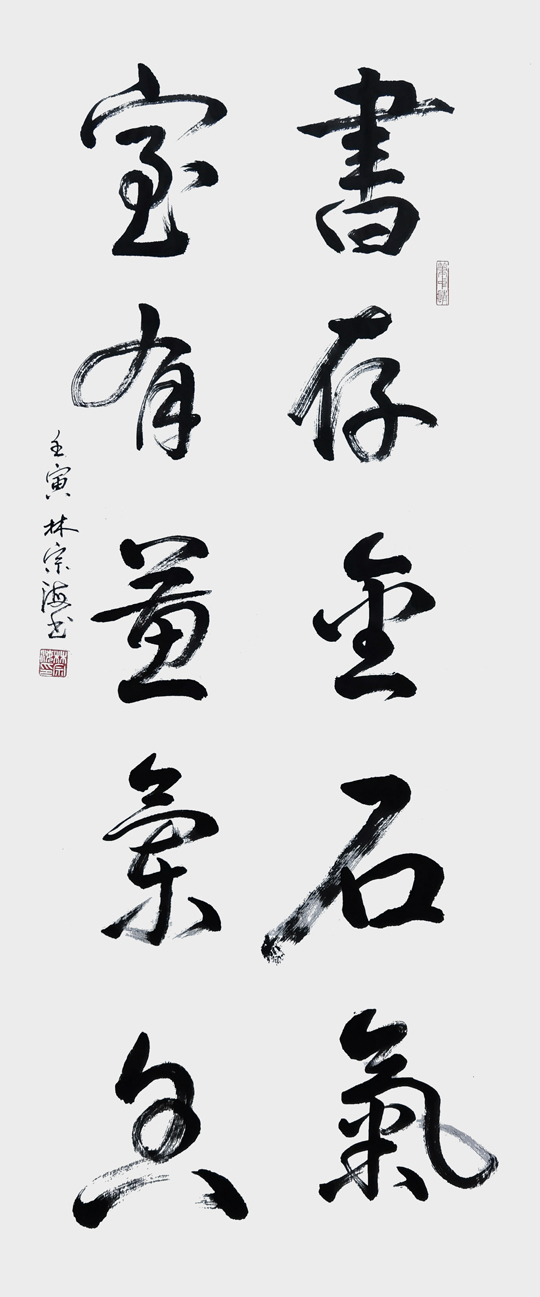 書存金石氣
室有蕙蘭香
壬寅 林宗海书